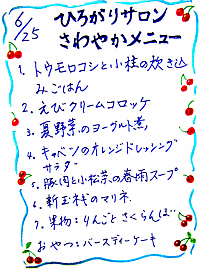 6/25
ひろがりサロン
さわやかメニュー
1. トウモロコシと小柱の炊き込
みごはん
2. えびクリームコロッケ
3. 夏野菜のヨーグルト煮
4. キャベツのオレンジドレッシング
サラダ
5. 豚肉と小松菜の春雨スープ
6. 新玉ネギのマリネ
7. 果物:りんごとさくらんぼ
おやつ:バースディーケーキ